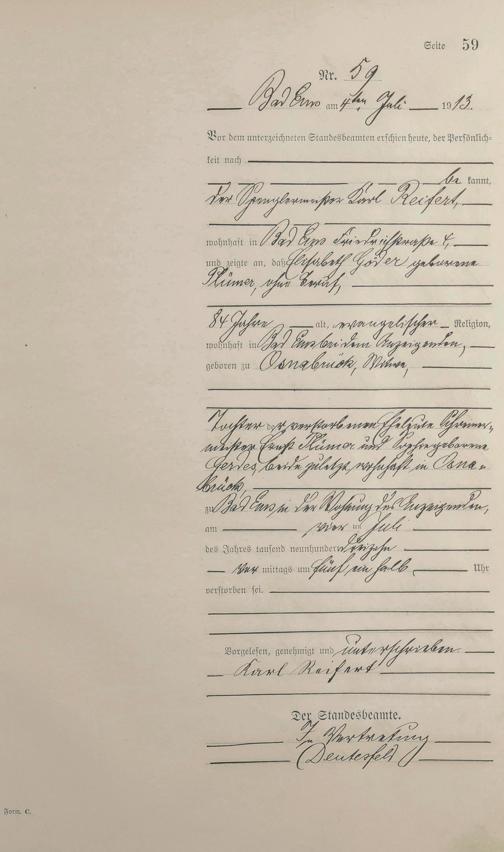 Seite 59
Nr. 59
Bad Ems am 4ten Juli 1913.
Vor dem unterzeichneten Standesbeamten erschien heute, der Persönlich-
keit nach
be kannt,
der Spenglermeister Karl Reifert,
wohnhaft in Bad Ems Friedrichstraße 4,
und zeigte an, daß Elisabeth Goder geborene
Plümer, ohne Beruf,
84 Jahre alt, evangelischer Religion,
wohnhaft in Bad Ems bei dem Anzeigenden,
geboren zu Osnabrück, Witwe,
Tochter der verstorbenen Eheleute Schreiner-
meister Ernst Plümer und Sophie geborene
Gerdes, beide zuletzt wohnhaft in Osna-
brück,
zu Bad Ems in der Wohnung des Anzeigenden,
am vier ten Juli
des Jahres tausend neunhundert dreizehn
vor mittags um fünf ein halb Uhr
verstorben sei.
Vorgelesen, genehmigt und unterschrieben
Karl Reifert
Der Standesbeamte.
In Vertretung
Form. C.